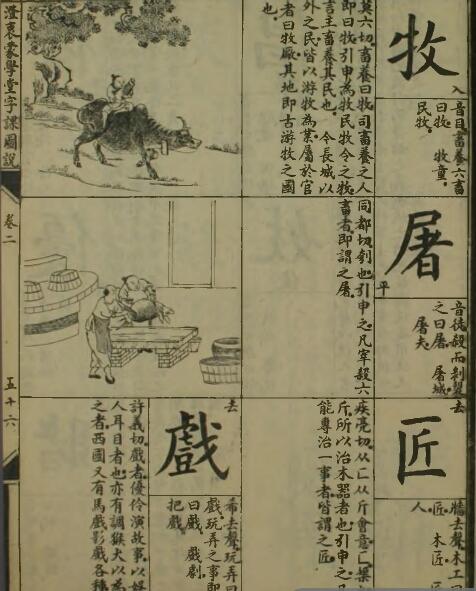 牧
入
音目畜養六畜
曰牧。 牧童。
民牧。
莫六切。畜養曰牧。司畜養之人
即曰牧。引申為牧民牧令之牧。
言主畜養其民也。 今長城以
外之民。皆以游牧為業。屬於官
者曰牧廠。其地即古游牧之國
也。
屠
平
音徒殺而刳剝
之曰屠。 屠城。
屠夫。
同都切。刳也。引申之。凡宰殺六
畜者。即謂之屠。
匠
去
牆去聲木工曰
匠。 木匠。 匠
人。
疾亮切。从匚从斤會意。
斤。所以治木器者也。引申之。凡
能專治一事者。皆謂之匠。
戲
去
希去聲。玩弄曰
戲。玩弄之事即
曰戲。 戲劇。
把戲。
許義切。戲者。優伶演故事。以娛
人耳目者也。亦有調猴犬以為
之者。西國又有馬戲影戲各種
澄衷蒙學堂字課圖說
卷二
五十六